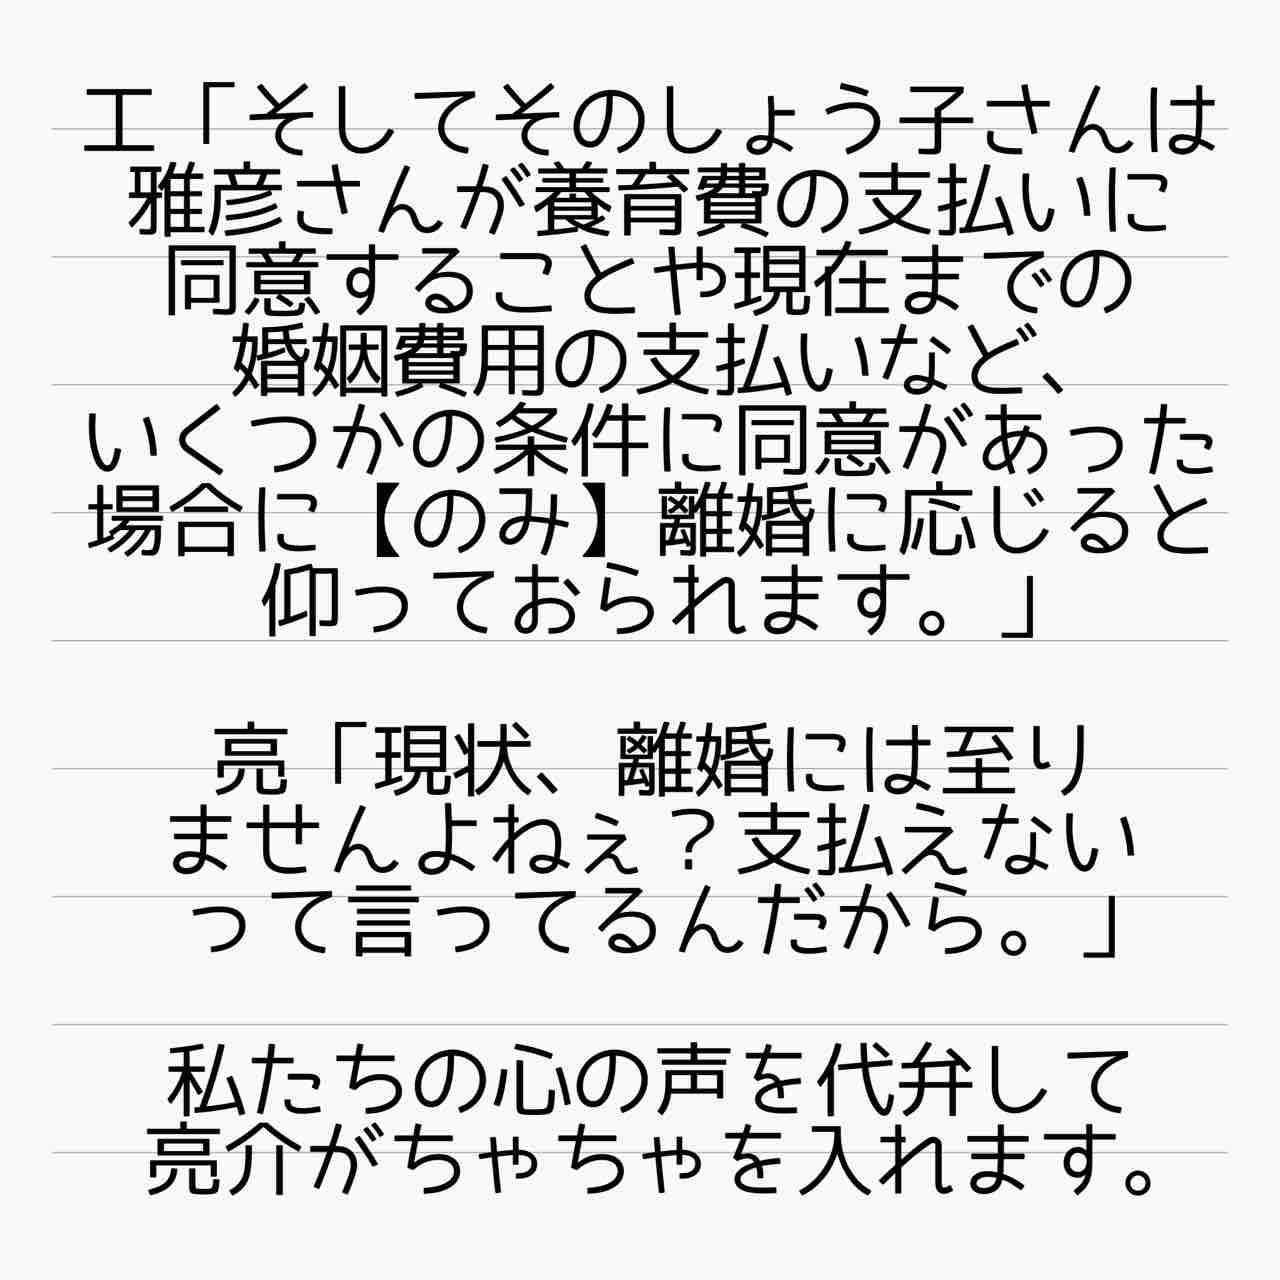 工「そしてそのしょう子さんは
雅彦さんが養育費の支払いに
同意することや現在までの
婚姻費用の支払いなど、
いくつかの条件に同意があった
場合に【のみ】離婚に応じると
仰っておられます。」
亮「現状、離婚には至り
ませんよねぇ？支払えない
って言ってるんだから。」
私たちの心の声を代弁して
亮介がちゃちゃを入れます。